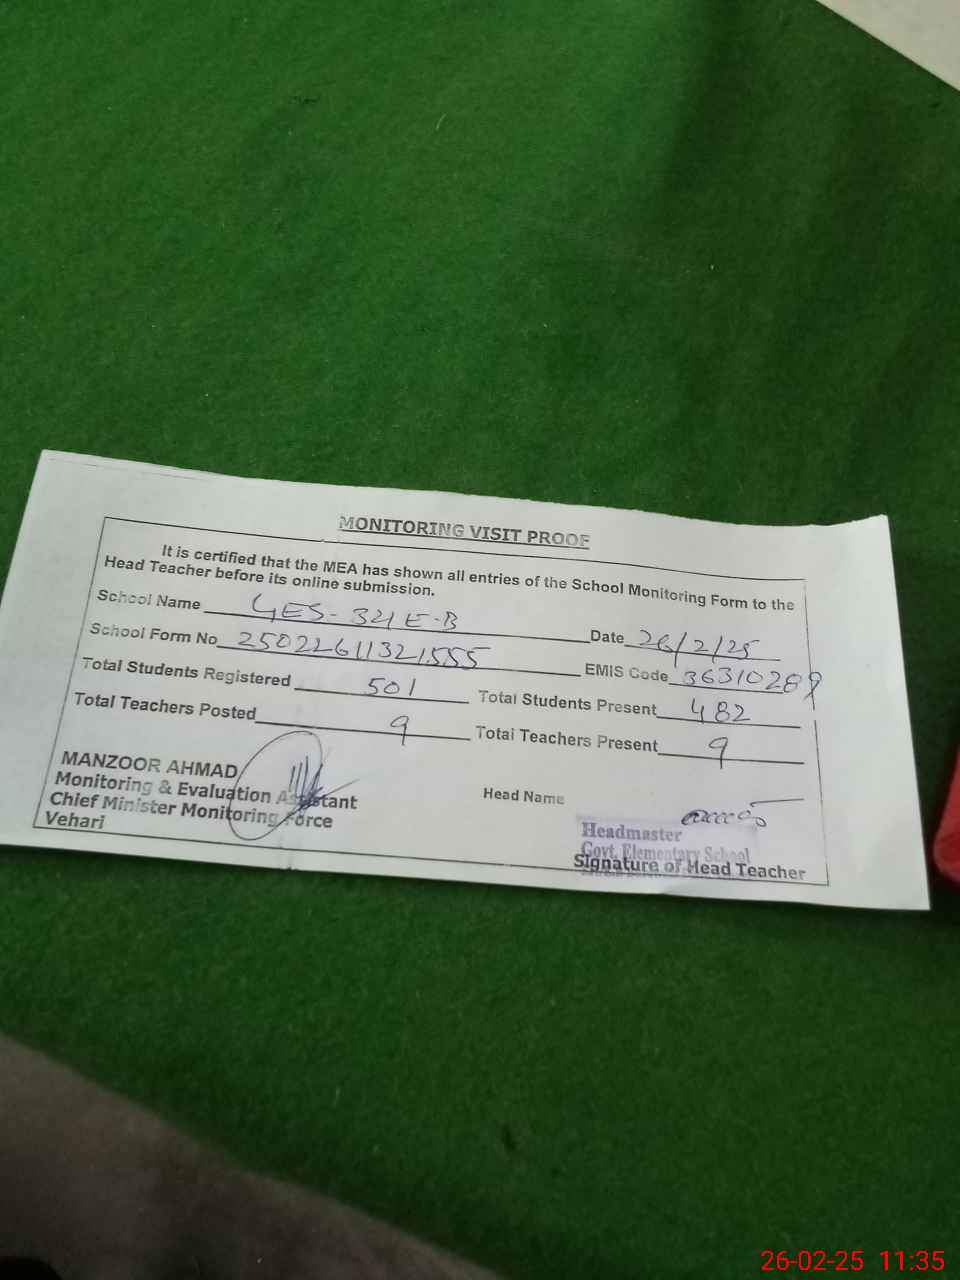 MONITORING VISIT PROOF
It is certified that the MEA has shown all entries of the School Monitoring Form to the
Head Teacher before its online submission.
School Name GES-321 E-B Date 26/2/25
School Form No 25022611321555 EMIS Code 36310289
Total Students Registered 501 Total Students Present 482
Total Teachers Posted 9 Total Teachers Present 9
MANZOOR AHMAD
Monitoring & Evaluation Assistant
Chief Minister Monitoring Force
Vehari
Head Name
Headmaster
Govt. Elementary School
Signature of Head Teacher
26-02-25 11:35